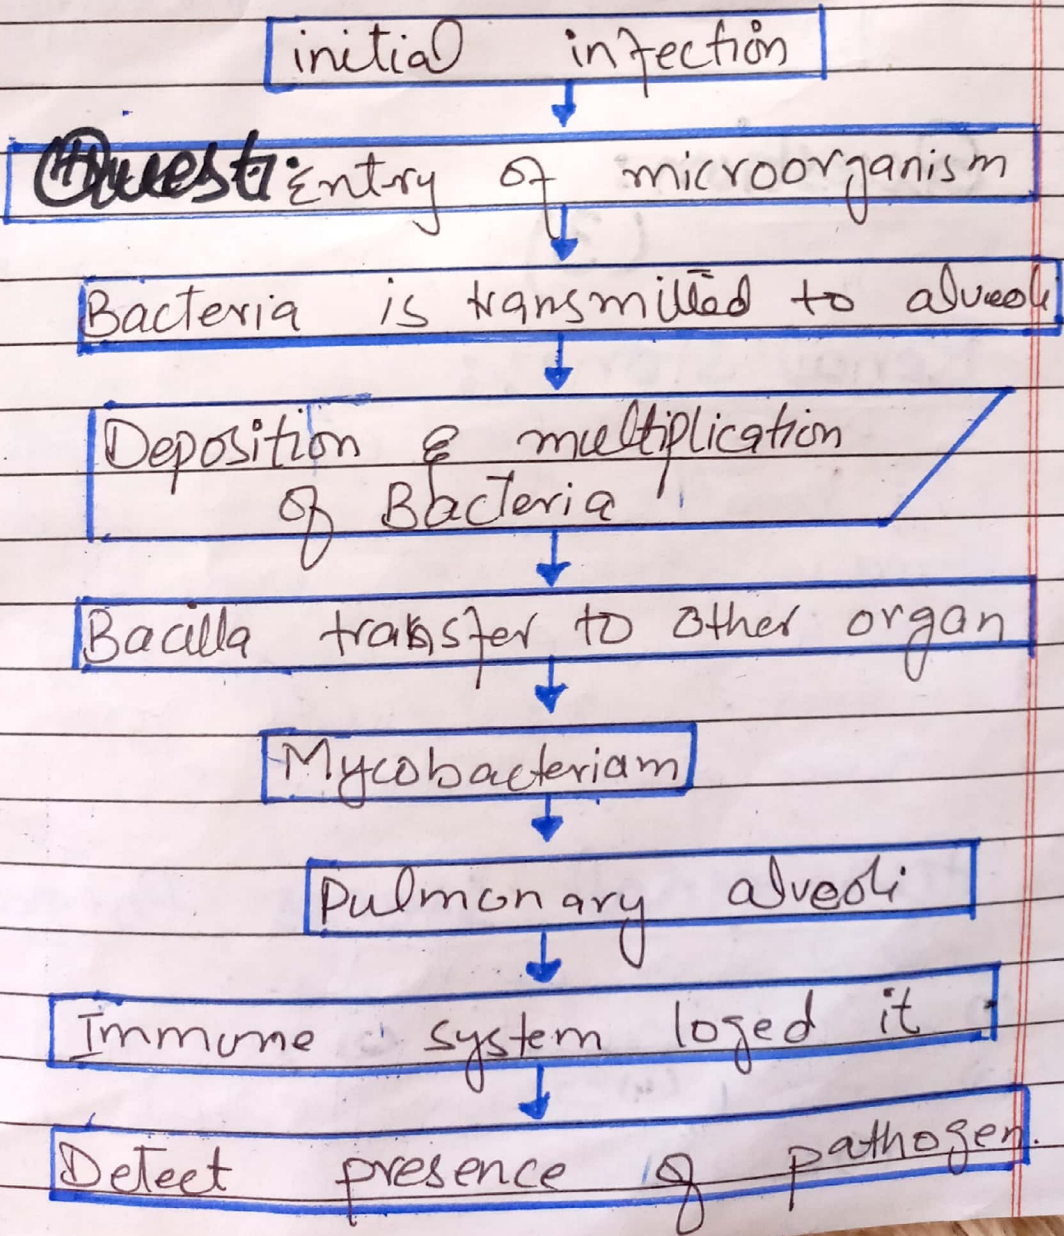 initial infection
Entry of microorganism
Bacteria is transmitted to alveoli
Deposition & multiplication
of Bacteria
Bacilla transfer to other organ
Mycobacteriam
Pulmonary alveoli
Immune system loged it
Detect presence of pathogen.